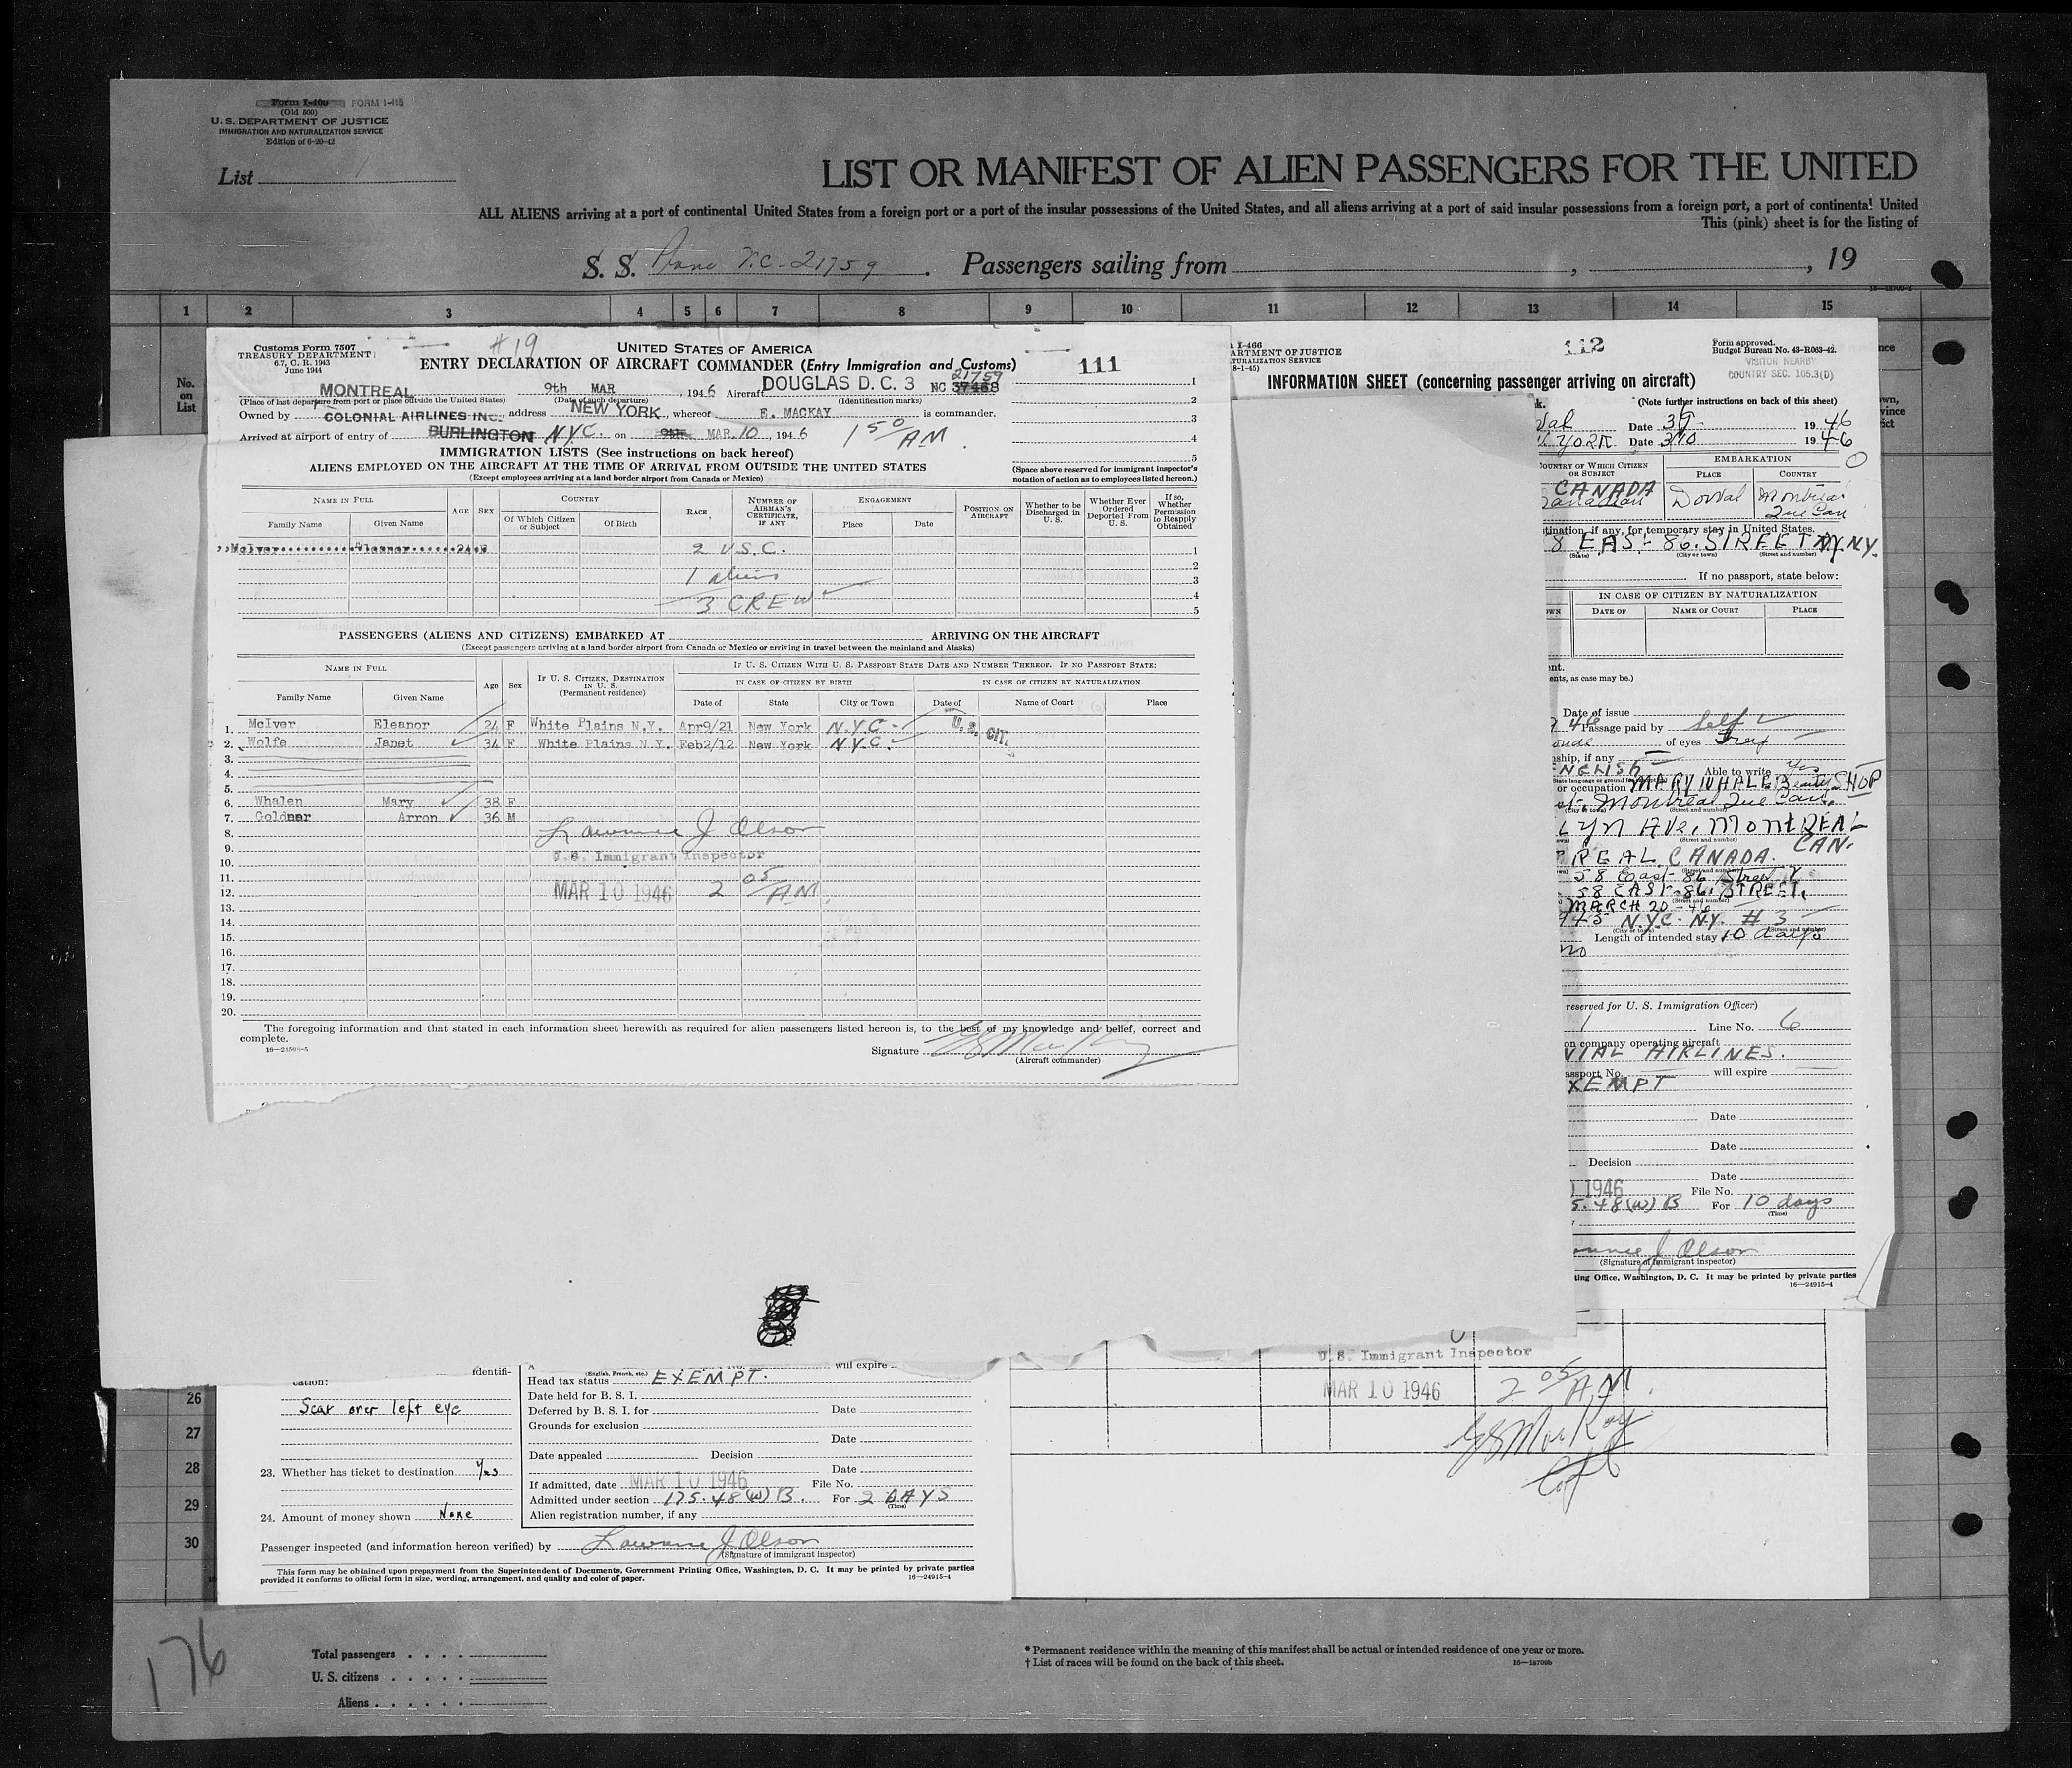 Form I-466 FORM I-415
(Old 500)
U. S. DEPARTMENT OF JUSTICE
IMMIGRATION AND NATURALIZATION SERVICE
Edition of 6-20-42
List 1
LIST OR MANIFEST OF ALIEN PASSENGERS FOR THE UNITED
ALL ALIENS arriving at a port of continental United States from a foreign port or a port of the insular possessions of the United States, and all aliens arriving at a port of said insular possessions from a foreign port, a port of continental United
This (pink) sheet is for the listing of
S. S. Plane N.C. - 21759 . Passengers sailing from , , 19
1 2 3 4 5 6 7 8 9 10 11 12 13 14 15
No. on List
Customs Form 7507
TREASURY DEPARTMENT
6.7, C. R. 1943
June 1944
#19
UNITED STATES OF AMERICA
ENTRY DECLARATION OF AIRCRAFT COMMANDER (Entry Immigration and Customs)
111
MONTREAL 9th MAR , 1946 Aircraft DOUGLAS D.C. 3 NC 37468 21759
(Place of last departure from port or place outside the United States) (Date of such departure) (Identification marks)
Owned by COLONIAL AIRLINES INC., address NEW YORK, whereof E. MACKAY is commander.
Arrived at airport of entry of BURLINGTON N.Y.C. on 9th MAR. 10, 1946 1 50 AM
IMMIGRATION LISTS (See instructions on back hereof)
ALIENS EMPLOYED ON THE AIRCRAFT AT THE TIME OF ARRIVAL FROM OUTSIDE THE UNITED STATES
(Except employees arriving at a land border airport from Canada or Mexico)
1
2
3
4
5
(Space above reserved for immigrant inspector's notation of action as to employees listed hereon.)
NAME IN FULL
Family Name Given Name AGE SEX
COUNTRY
Of Which Citizen or Subject Of Birth
RACE
NUMBER OF AIRMAN'S CERTIFICATE, IF ANY
ENGAGEMENT
Place Date
POSITION ON AIRCRAFT
Whether to be Discharged in U. S.
Whether Ever Ordered Deported From U. S.
If so, Whether Permission to Reapply Obtained
McIver Eleanor 24 F 2 U.S.C. 1
2
1 alien 3
4
3 CREW 5
PASSENGERS (ALIENS AND CITIZENS) EMBARKED AT ARRIVING ON THE AIRCRAFT
(Except passengers arriving at a land border airport from Canada or Mexico or arriving in travel between the mainland and Alaska)
NAME IN FULL
Family Name Given Name Age Sex
IF U. S. CITIZEN, DESTINATION IN U. S.
(Permanent residence)
IF U. S. CITIZEN WITH U. S. PASSPORT STATE DATE AND NUMBER THEREOF. IF NO PASSPORT STATE:
IN CASE OF CITIZEN BY BIRTH IN CASE OF CITIZEN BY NATURALIZATION
Date of State City or Town Date of Name of Court Place
1. McIver Eleanor 24 F White Plains N.Y. Apr9/21 New York N.Y.C. U.S. CIT.
2. Wolfe Janet 34 F White Plains N.Y. Feb2/12 New York N.Y.C.
3.
4.
5.
6. Whalen Mary 38 F
7. Goldner Arron 36 M
8. Lawrence J Olson
9.
10. U.S. Immigrant Inspector
11.
12. MAR 10 1946 2 05 AM
13.
14.
15.
16.
17.
18.
19.
20.
The foregoing information and that stated in each information sheet herewith as required for alien passengers listed hereon is, to the best of my knowledge and belief, correct and complete.
16—24508-5
Signature
(Aircraft commander)
I-466
ARTMENT OF JUSTICE
TURALIZATION SERVICE
8-1-45)
112
Form approved.
Budget Bureau No. 43-R063-42.
VISITOR NEARBY
COUNTRY SEC. 105.3(D)
INFORMATION SHEET (concerning passenger arriving on aircraft)
k. (Note further instructions on back of this sheet)
val Date 1946
YORK Date 3/10 1946
COUNTRY OF WHICH CITIZEN OR SUBJECT
EMBARKATION
PLACE COUNTRY
CANADA
Canadian Dorval Montreal
Que Can
tination, if any, for temporary stay in United States.
8 EAS- 86. STREET N.Y. N.Y.
(State) (City or town) (Street and number)
If no passport, state below:
IN CASE OF CITIZEN BY NATURALIZATION
OWN DATE OF NAME OF COURT PLACE
ent.
ents, as case may be.)
Date of issue
46 Passage paid by Self
onde of eyes Grey
ship, if any
ENGLISH Able to write Yes
or occupation MARY WHALEN Beauty SHOP
Montreal Que Can.
LYN AVE, MONTREAL
CAN.
REAL CANADA.
58 East 86 Street
58 EAST-86. STREET.
MARCH 20-46
N.Y.C. N.Y. #3
Length of intended stay 10 days
no
reserved for U. S. Immigration Officer)
1 Line No. 6
on company operating aircraft
NIAL AIRLINES.
assport No. will expire
EXEMPT
Date
Date
Decision
Date
1946 File No.
5.48(W) B For 10 days
(Time)
J Olson
(Signature of immigrant inspector)
ting Office, Washington, D. C. It may be printed by private parties
16—24915-4
U.S. Immigrant Inspector
MAR 10 1946 2 05 AM
26
27
28
29
30
identifi-
cation:
Scar over left eye
23. Whether has ticket to destination Yes
24. Amount of money shown None
will expire
(English, French, etc.)
Head tax status EXEMPT.
Date held for B. S. I.
Deferred by B. S. I. for Date
Grounds for exclusion
Date
Date appealed Decision
Date
If admitted, date MAR 10 1946 File No.
Admitted under section 175.48(W) B. For 2 DAYS
(Time)
Alien registration number, if any
Passenger inspected (and information hereon verified) by Lawrence J Olson
(Signature of immigrant inspector)
This form may be obtained upon prepayment from the Superintendent of Documents, Government Printing Office, Washington, D. C. It may be printed by private parties
provided it conforms to official form in size, wording, arrangement, and quality and color of paper. 16—24915-4
176
Total passengers
U. S. citizens
Aliens
* Permanent residence within the meaning of this manifest shall be actual or intended residence of one year or more.
† List of races will be found on the back of this sheet.